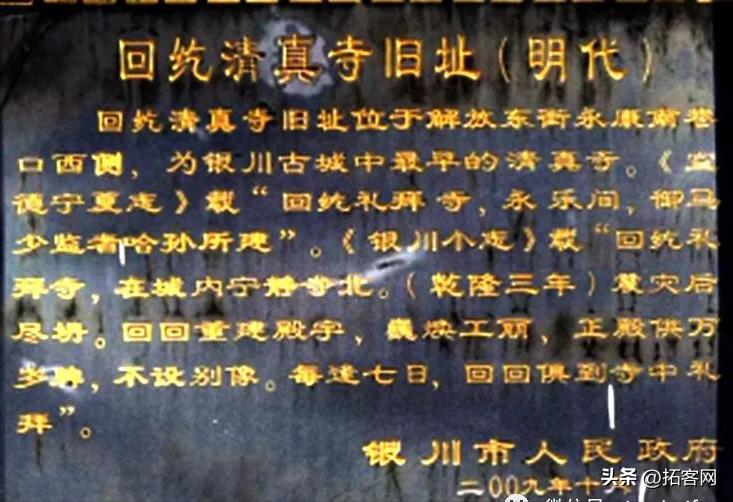 回纥清真寺旧址（明代）
回纥清真寺旧址位于解放东街永康南巷
口西侧，为银川古城中最早的清真寺。《宣
德宁夏志》载“回纥礼拜寺，永乐间，御马
少监者哈孙所建”。《银川小志》载“回纥礼
拜寺，在城内宁静寺北。（乾隆三年）震灾后
尽坍。回回重建殿宇，巍焕工丽，正殿供万
岁牌，不设别像。每逢七日，回回俱到寺中礼
拜”。
银川市人民政府
二00九年十
头条 @拓客网